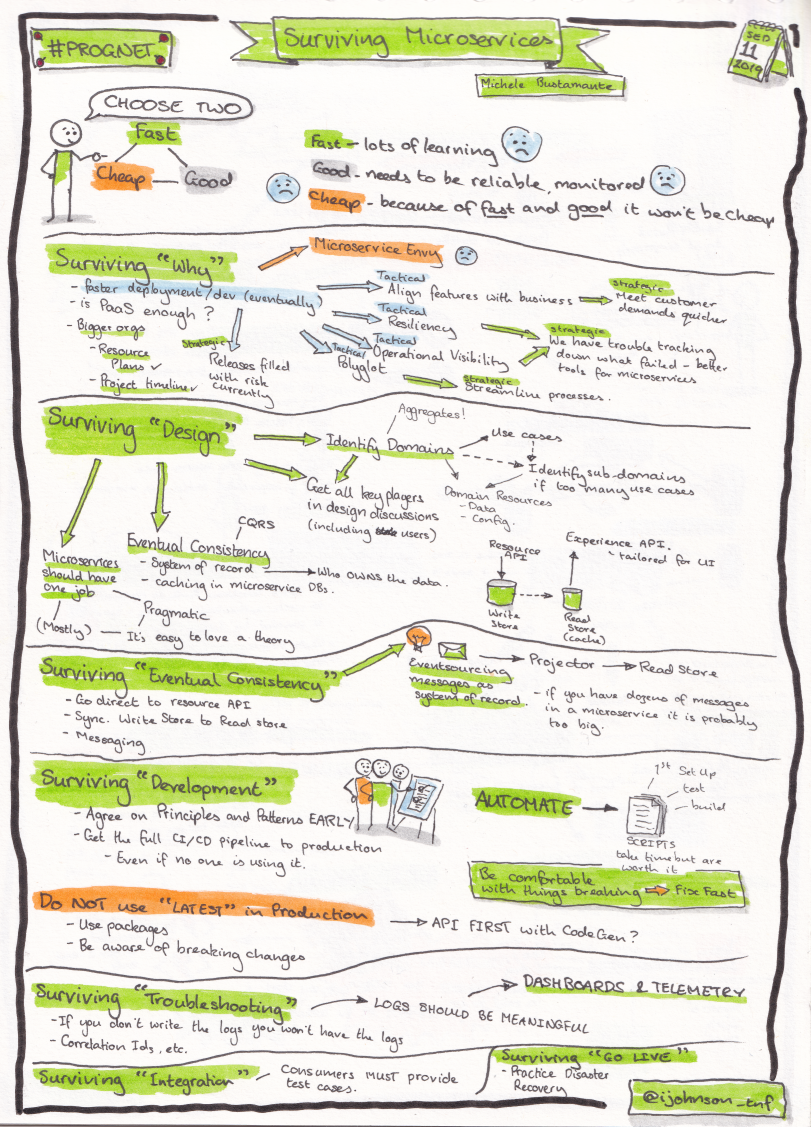 #PROGNET
Surviving Microservices
SEP
11
2019
Michele Bustamante
CHOOSE TWO
Fast
Cheap
Good
Fast - lots of learning
Good - needs to be reliable, monitored
Cheap - because of fast and good it won't be cheap
Surviving "Why"
Microservice Envy
- faster deployment/dev (eventually)
- is PaaS enough?
- Bigger orgs
- Resource
Plans ✓
- Project timeline ✓
Strategic
Releases filled
with risk
currently
Tactical
Align features with business
strategic
Meet customer
demands quicker
Tactical
Resiliency
Tactical
Operational Visibility
Tactical
Polyglot
strategic
We have trouble tracking
down what failed - better
tools for microservices
strategic
Streamline processes.
Surviving "Design"
Aggregates!
Identify Domains
Use cases
Identify sub-domains
if too many use cases
Get all key players
in design discussions
(including users)
Domain Resources
- Data
- Config.
CQRS
Eventual Consistency
- System of record
- caching in microservice DBs.
Who OWNS the data.
Microservices
should have
one job
(Mostly)
Pragmatic
It's easy to love a theory
Resource
API
Write
Store
Experience API.
- tailored for UI
Read
Store
(cache)
Surviving "Eventual Consistency"
- Go direct to resource API
- Sync. Write Store to Read store
- Messaging
Eventsourcing
messages as
system of record.
Projector
Read Store
- if you have dozens of messages
in a microservice it is probably
too big.
Surviving "Development"
- Agree on Principles and Patterns EARLY
- Get the full CI/CD pipeline to production
- Even if no one is using it.
AUTOMATE
1st Set Up
test
build
SCRIPTS
take time but are
worth it
Be comfortable
with things breaking
Fix Fast
Do NOT use "LATEST" in Production
- Use packages
- Be aware of breaking changes
API FIRST with CodeGen?
Surviving "Troubleshooting"
- If you don't write the logs you won't have the logs
- Correlation Ids, etc.
LOGS SHOULD BE MEANINGFUL
DASHBOARDS & TELEMETRY
Surviving "Integration"
Consumers MUST provide
test cases.
Surviving "GO LIVE"
- Practice Disaster
Recovery
@ijohnson_tnf